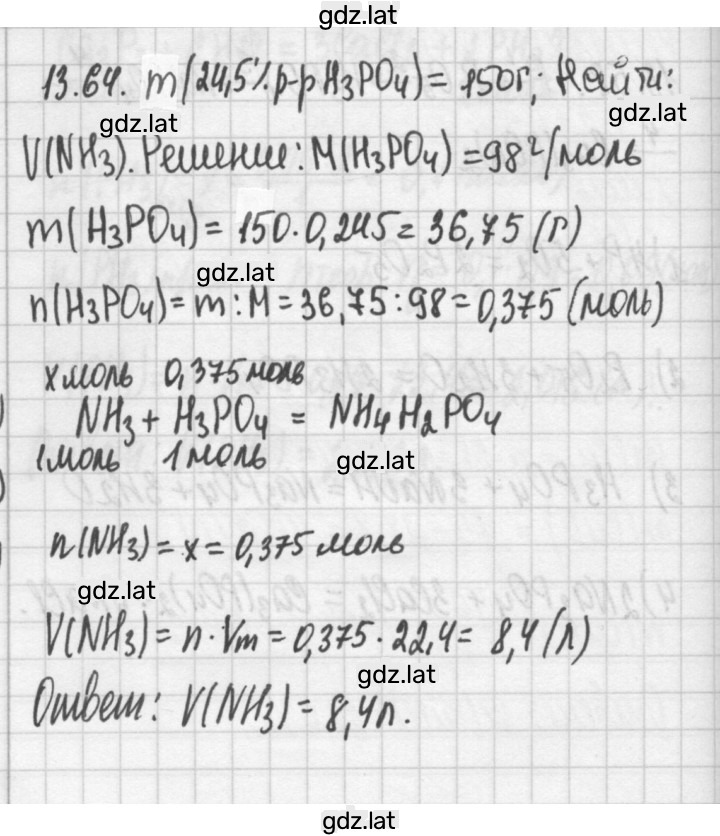 gdz.lat
13.64. m(24,5% р-р H₃PO₄) = 150г; Найти:
gdz.lat
gdz.lat
V(NH₃). Решение: M(H₃PO₄) = 98 г/моль
m(H₃PO₄) = 150·0,245 = 36,75 (г)
gdz.lat
n(H₃PO₄) = m : M = 36,75 : 98 = 0,375 (моль)
x моль 0,375 моль
NH₃ + H₃PO₄ = NH₄H₂PO₄
1 моль 1 моль
gdz.lat
n(NH₃) = x = 0,375 моль
gdz.lat
V(NH₃) = n · Vm = 0,375 · 22,4 = 8,4 (л)
gdz.lat
Ответ: V(NH₃) = 8,4 л.
gdz.lat